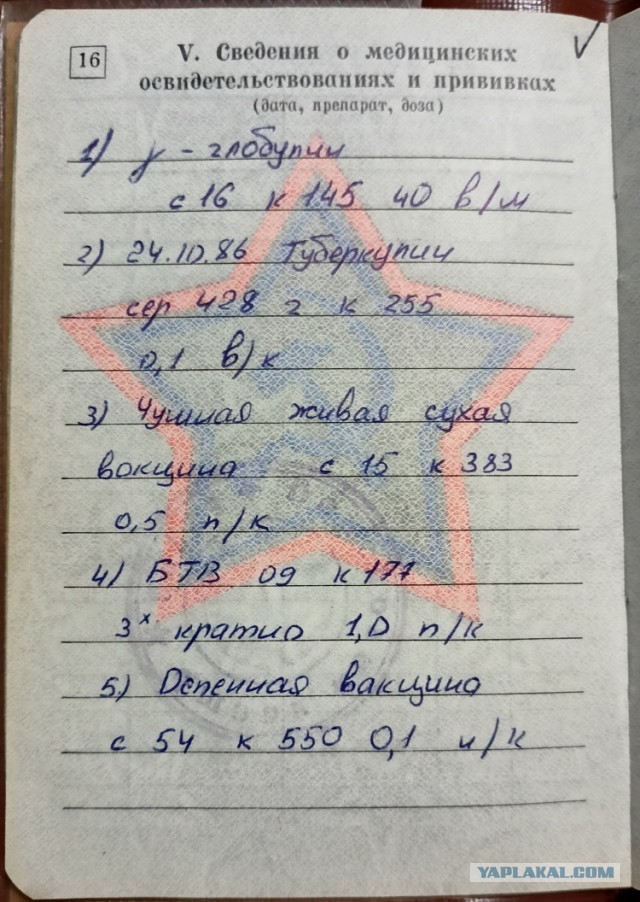 16
V. Сведения о медицинских
освидетельствованиях и прививках
(дата, препарат, доза)
1) γ - глобулин
с 16 к 145 40 в/м
2) 24.10.86 Туберкулин
сер 428 2 к 255
0,1 в/к
3) Чумная живая сухая
вакцина с 15 к 383
0,5 п/к
4) БТВ 09 к 177
3х кратно 1,0 п/к
5) Оспенная вакцина
с 54 к 550 0,1 н/к
YAPLAKAL.COM